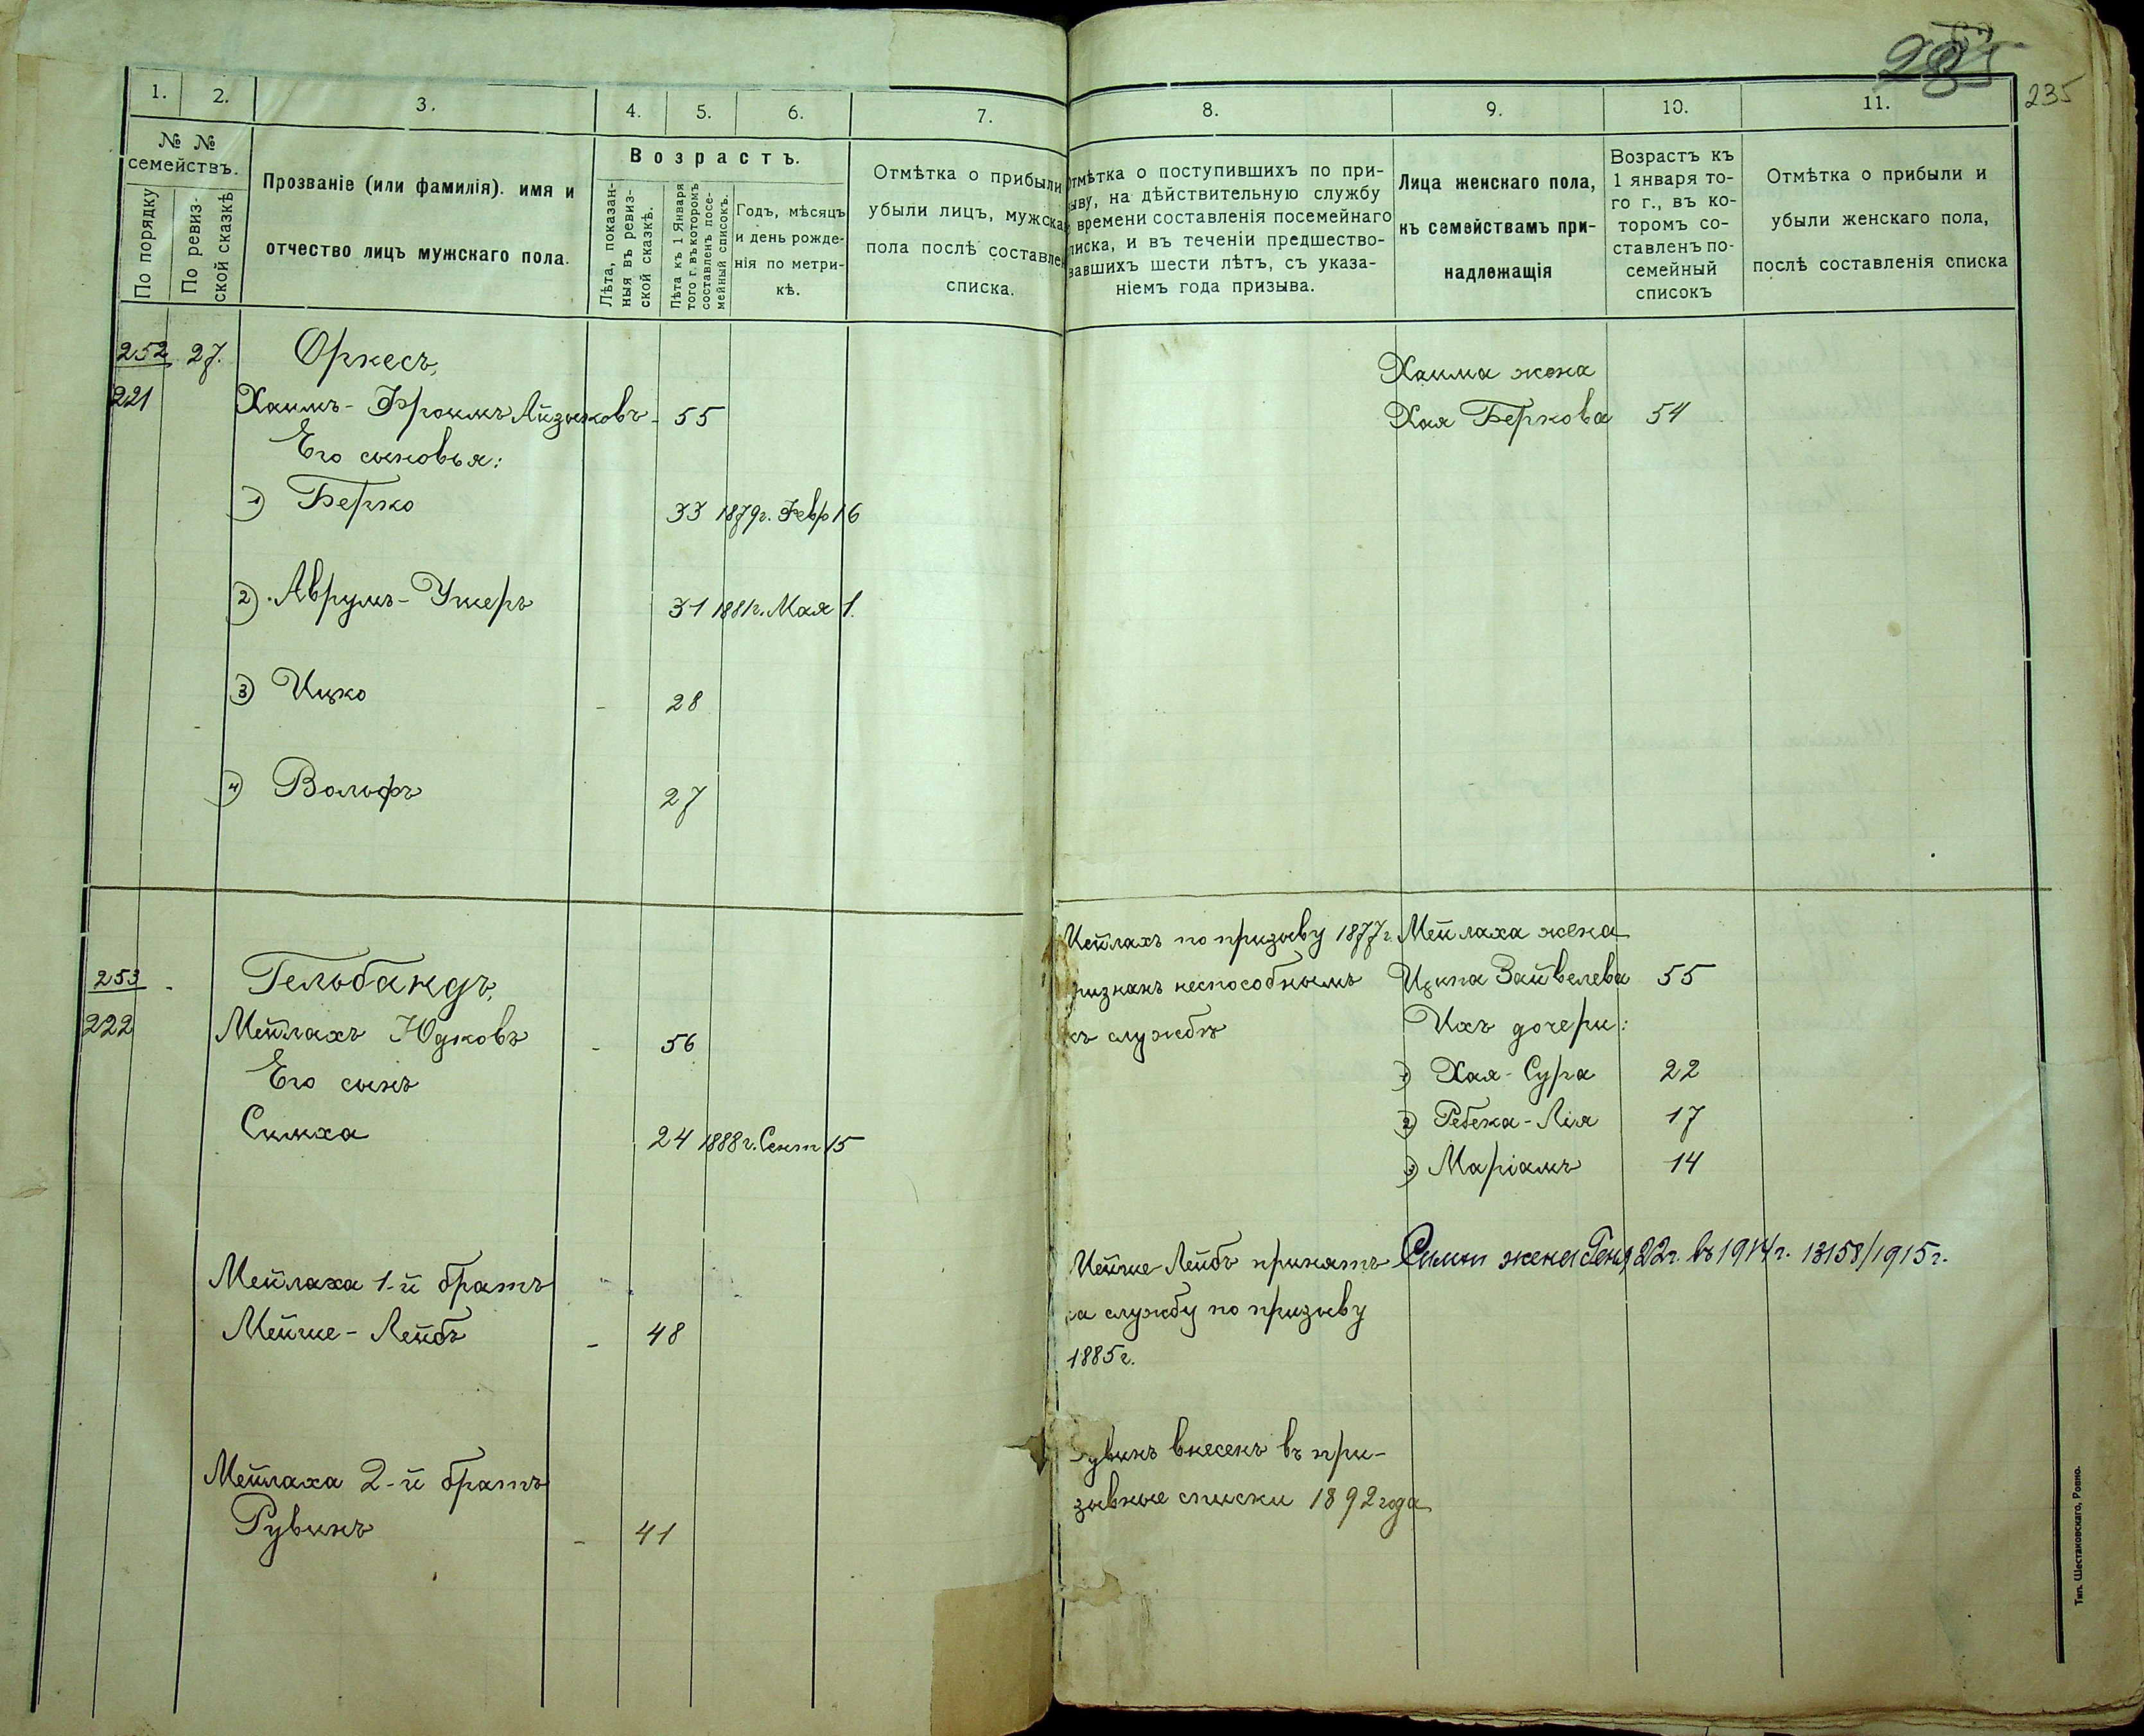 235
1.
2.
3.
4.
5.
6.
7.
8.
9.
10.
11.
№ №
семействъ.
По порядку
По ревиз-
ской сказкѣ
Прозваніе (или фамилія). имя и
отчество лицъ мужскаго пола.
Возрастъ.
Лѣта, показан-
ныя въ ревиз-
ской сказкѣ.
Лѣта къ 1 Января
того г. въ которомъ
составленъ посе-
мейный списокъ.
Годъ, мѣсяцъ
и день рожде-
нія по метри-
кѣ.
Отмѣтка о прибыли
убыли лицъ, мужска
пола послѣ составлен
списка.
Отмѣтка о поступившихъ по при-
ыву, на дѣйствительную службу
времени составленія посемейнаго
писка, и въ теченіи предшество-
вавшихъ шести лѣтъ, съ указа-
ніемъ года призыва.
Лица женскаго пола,
къ семействамъ при-
надлежащія
Возрастъ къ
1 января то-
го г., въ ко-
торомъ со-
ставленъ по-
семейный
списокъ
Отмѣтка о прибыли и
убыли женскаго пола,
послѣ составленія списка
252 27. Оркесъ,
221 Хаимъ-Фроимъ Айзиковъ - 55
Его сыновья:
1) Берко 33 1879г. Февр 16
2) Аврумъ-Ушеръ 31 1881г. Мая 1.
3) Ицко - 28
4) Вольфъ 27
Хаима жена
Хая Беркова 54
253 - Гельбандъ,
222 Мейлахъ Юдковъ - 56
Его сынъ
Симха 24 1888г. Сент 15
Мейлаха 1-й братъ
Мейше-Лейбъ - 48
Мейлаха 2-й братъ
Рувинъ - 41
Мейлахъ по призыву 1877г.
ризнанъ неспособнымъ
къ службѣ
Мейше-Лейбъ принятъ
на службу по призыву
1885г.
Рувинъ внесенъ въ при-
зывные списки 1892 года
Мейлаха жена
Ципа Зайвелева 55
Ихъ дочери:
1) Хая-Сура 22
2) Ребека-Лія 17
3) Маріамъ 14
жена Геня 22г. въ 1914г. 13158/1915г.
Тип. Шестаковскаго, Ровно.